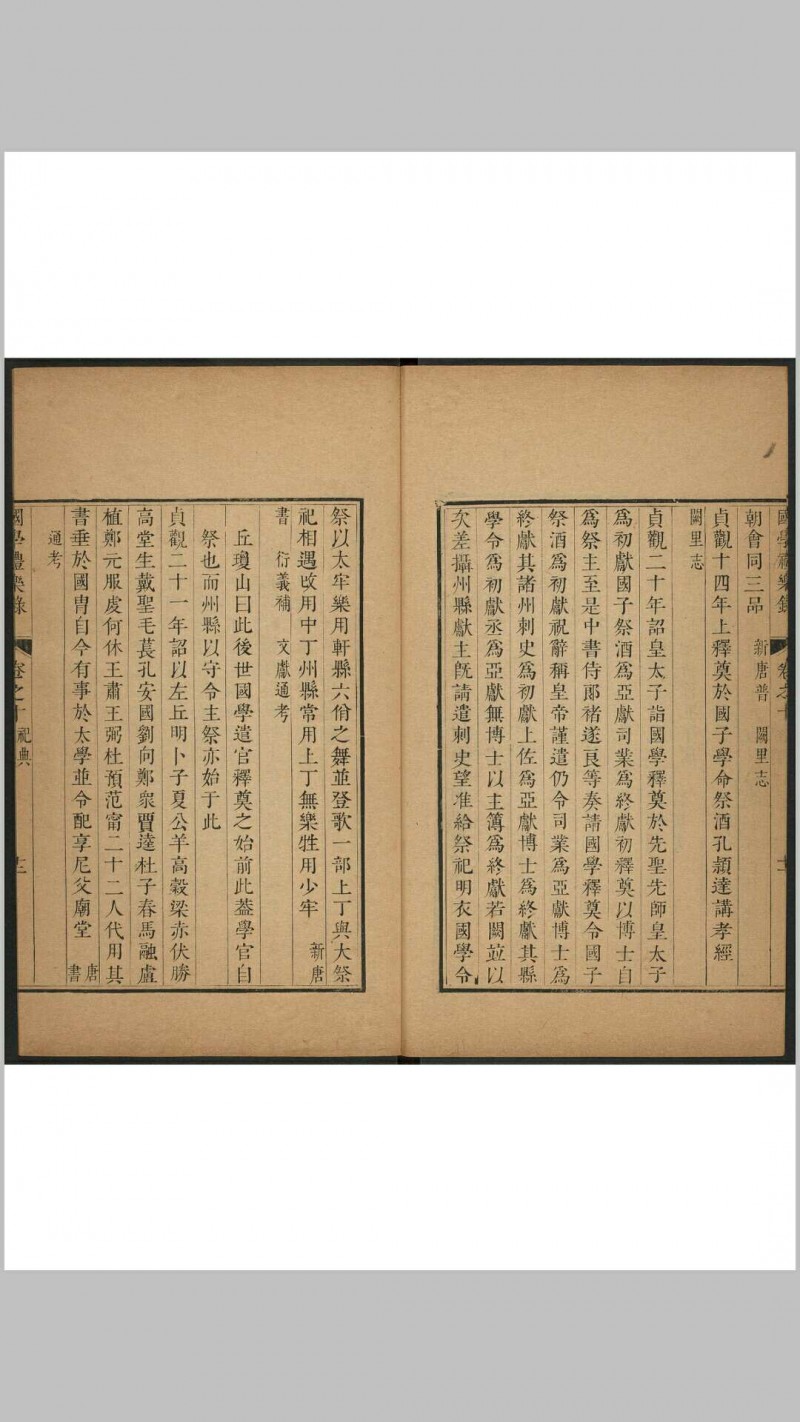 國學禮樂錄 卷之十
朝會同三品 新唐書 闕里志
貞觀十四年上釋奠於國子學命祭酒孔頴達講孝經
闕里志
貞觀二十年詔皇太子詣國學釋奠於先聖先師皇太子
爲初獻國子祭酒爲亞獻司業爲終獻初釋奠以博士自
爲祭主至是中書侍郞褚遂良等奏請國學釋奠令國子
祭酒爲初獻祝辭稱皇帝謹遣仍令司業爲亞獻博士爲
終獻其諸州刺史爲初獻上佐爲亞獻博士爲終獻其縣
學令爲初獻丞爲亞獻無博士以主簿爲終獻若闕並以
次差攝州縣獻主旣請遣刺史望准給祭祀明衣國學令
祭以太牢樂用軒縣六佾之舞並登歌一部上丁與大祭
祀相遇改用中丁州縣常用上丁無樂牲用少牢 新唐
書 衍義補 文獻通考
丘瓊山曰此後世國學遣官釋奠之始前此葢學官自
祭也而州縣以守令主祭亦始于此
貞觀二十一年詔以左丘明卜子夏公羊高穀梁赤伏勝
高堂生戴聖毛萇孔安國劉向鄭衆賈逵杜子春馬融盧
植鄭元服虔何休王肅王弼杜預范甯二十二人代用其
書垂於國胄自今有事於太學並令配享尼父廟堂 唐書
通考
國學禮樂錄 卷之十 祀典